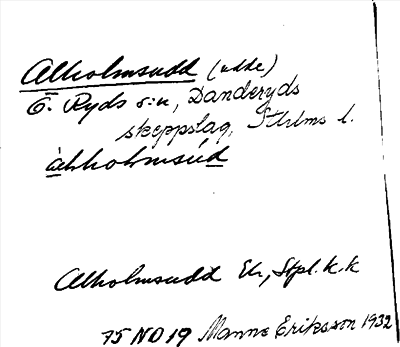 Alholmsudd (udde)
Ö. Ryds s:n, Danderyds
skeppslag, Sthlms l.
àlhholmsúd
Alholmsudd Ek, Stpl. k.k
75 ND 19 Manne Eriksson 1932